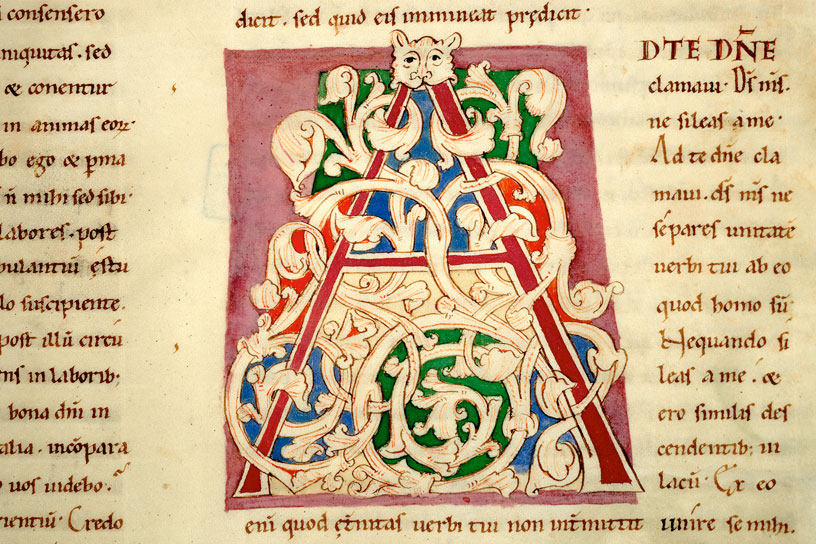 consensero
niquitas. sed
& conentur
in animas eorꝝ·
bo ego & p̄ma
n̄ mihi sed sibi·
labores. post
pulantiū ęstu
lo suscipiente.
post illū circū
ns in laborib;
bona dn̄i in
alia. incōpara
uos uidebo.
uentiū· Credo
dicit. sed quid eis immineat prędicit·
A
D TE DN̄E
clamaui· D̄s m̄s·
ne sileas a me·
Ad te dn̄e cla
maui. d̄s m̄s ne
separes unitatē
uerbi tui ab eo
quod homo sū·
Nequando si
leas a me. &
ero similis des
cendentib; in
lacū· Ex eo
enī quod ęt̄nitas uerbi tui non int̄mittit unire se mihi.